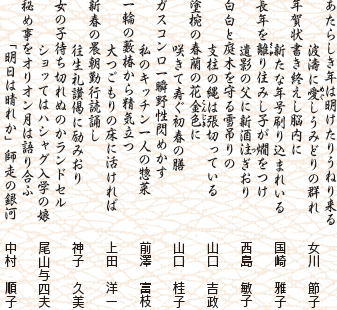 あたらしき年は明けたりうねり来る
波濤に愛しうみどりの群れ
女川 節子
年賀状書き終えし脳内に
新たな年号刷り込まれいる
国崎 雅子
長年を離り住みし子が燗をつけ
遺影の父に新酒注ぎおり
西島 敏子
白白と庭木を守る雪吊りの
支柱の縄は張切っている
山口 吉政
塗椀の春蘭の花金色に
咲きて寿ぐ初春の膳
山口 桂子
ガスコンロ一瞬野性閃めかす
私のキッチン一人の惣菜
前澤 富枝
一輪の藪椿から精気立つ
大つごもりの床に活ければ
上田 洋一
新春の晨朝勤行読誦し
往生礼讃偈に励みおり
神子 久美
女の子待ち切れぬのかランドセル
ショってはハシャグ入学の娘
尾山与四夫
秘め事をオリオン月は語り合ふ
「明日は晴れか」師走の銀河
中村 順子